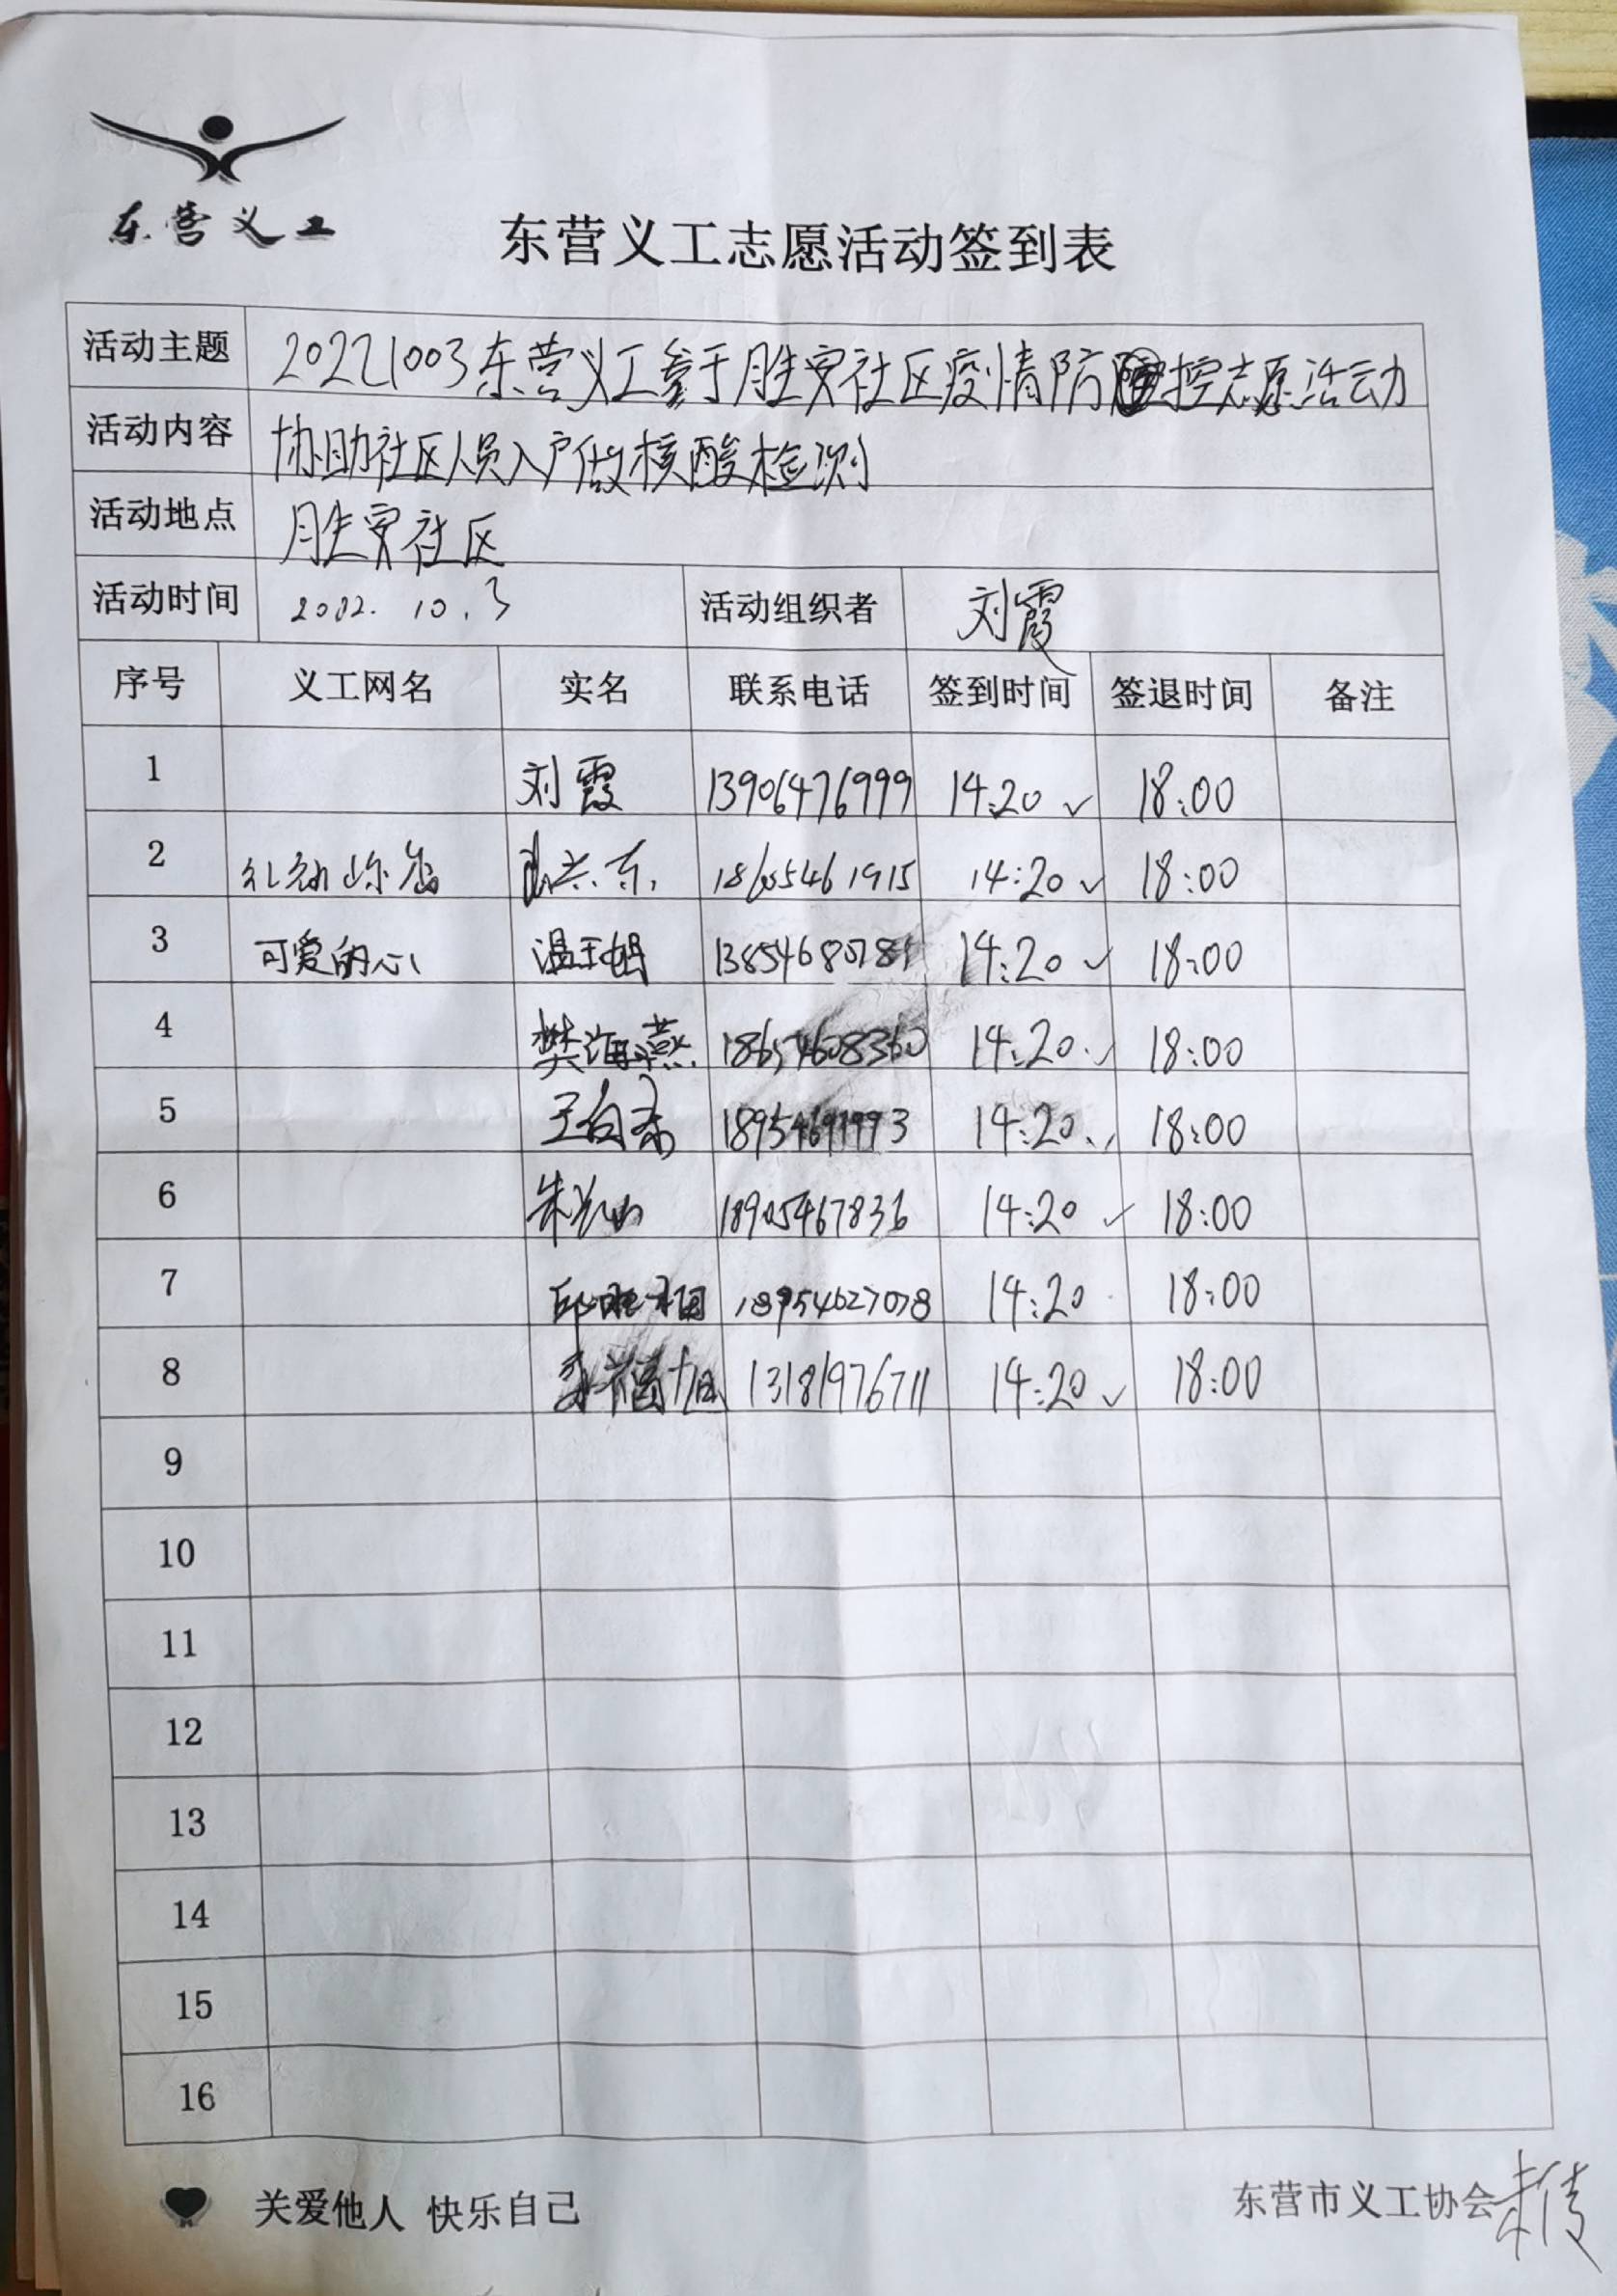 东营义工
东营义工志愿活动签到表
活动主题 20221003东营义工参于胜安社区疫情防控志愿活动
活动内容 协助社区人员入户做核酸检测
活动地点 胜安社区
活动时间 2022.10.3 活动组织者 刘霞
序号 义工网名 实名 联系电话 签到时间 签退时间 备注
1 刘霞 13906476999 14:20 ✓ 18:00
2 18605461915 14:20 ✓ 18:00
3 可爱的心 14:20 ✓ 18:00
4 樊海燕 18654608360 14:20 ✓ 18:00
5 14:20 18:00
6 18905467836 14:20 ✓ 18:00
7 18954627078 14:20 18:00
8 13181976711 14:20 ✓ 18:00
9
10
11
12
13
14
15
16
关爱他人 快乐自己 东营市义工协会